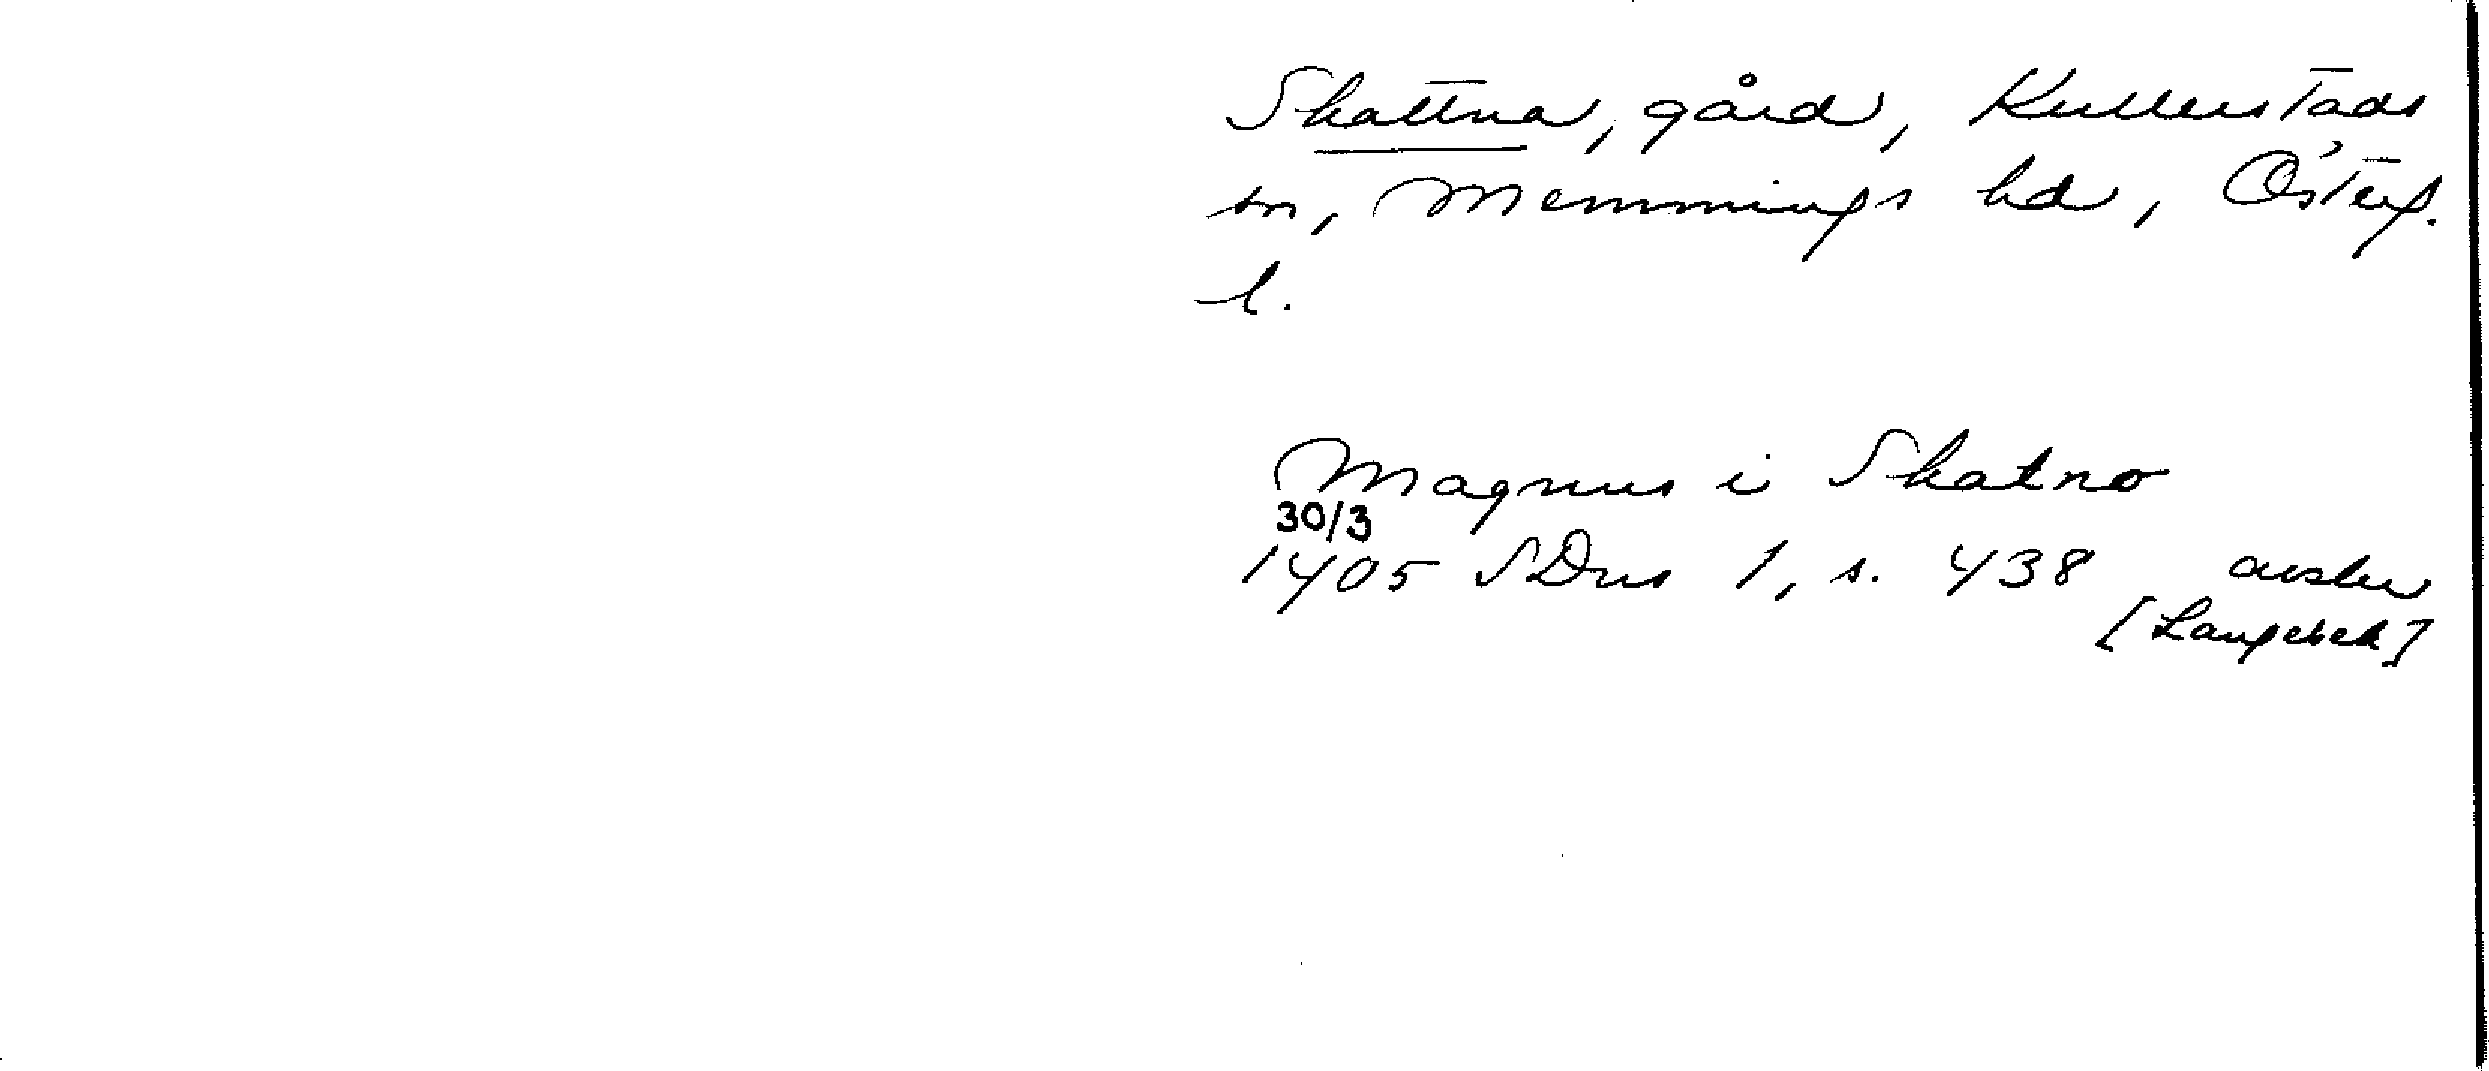 Skattna, gård, Kullerstads
sn, Memmings hd, Österg.
l.
Magnus i Skatno
30/3
1405 SDns 1, s. 438 avskr
[Langebek]